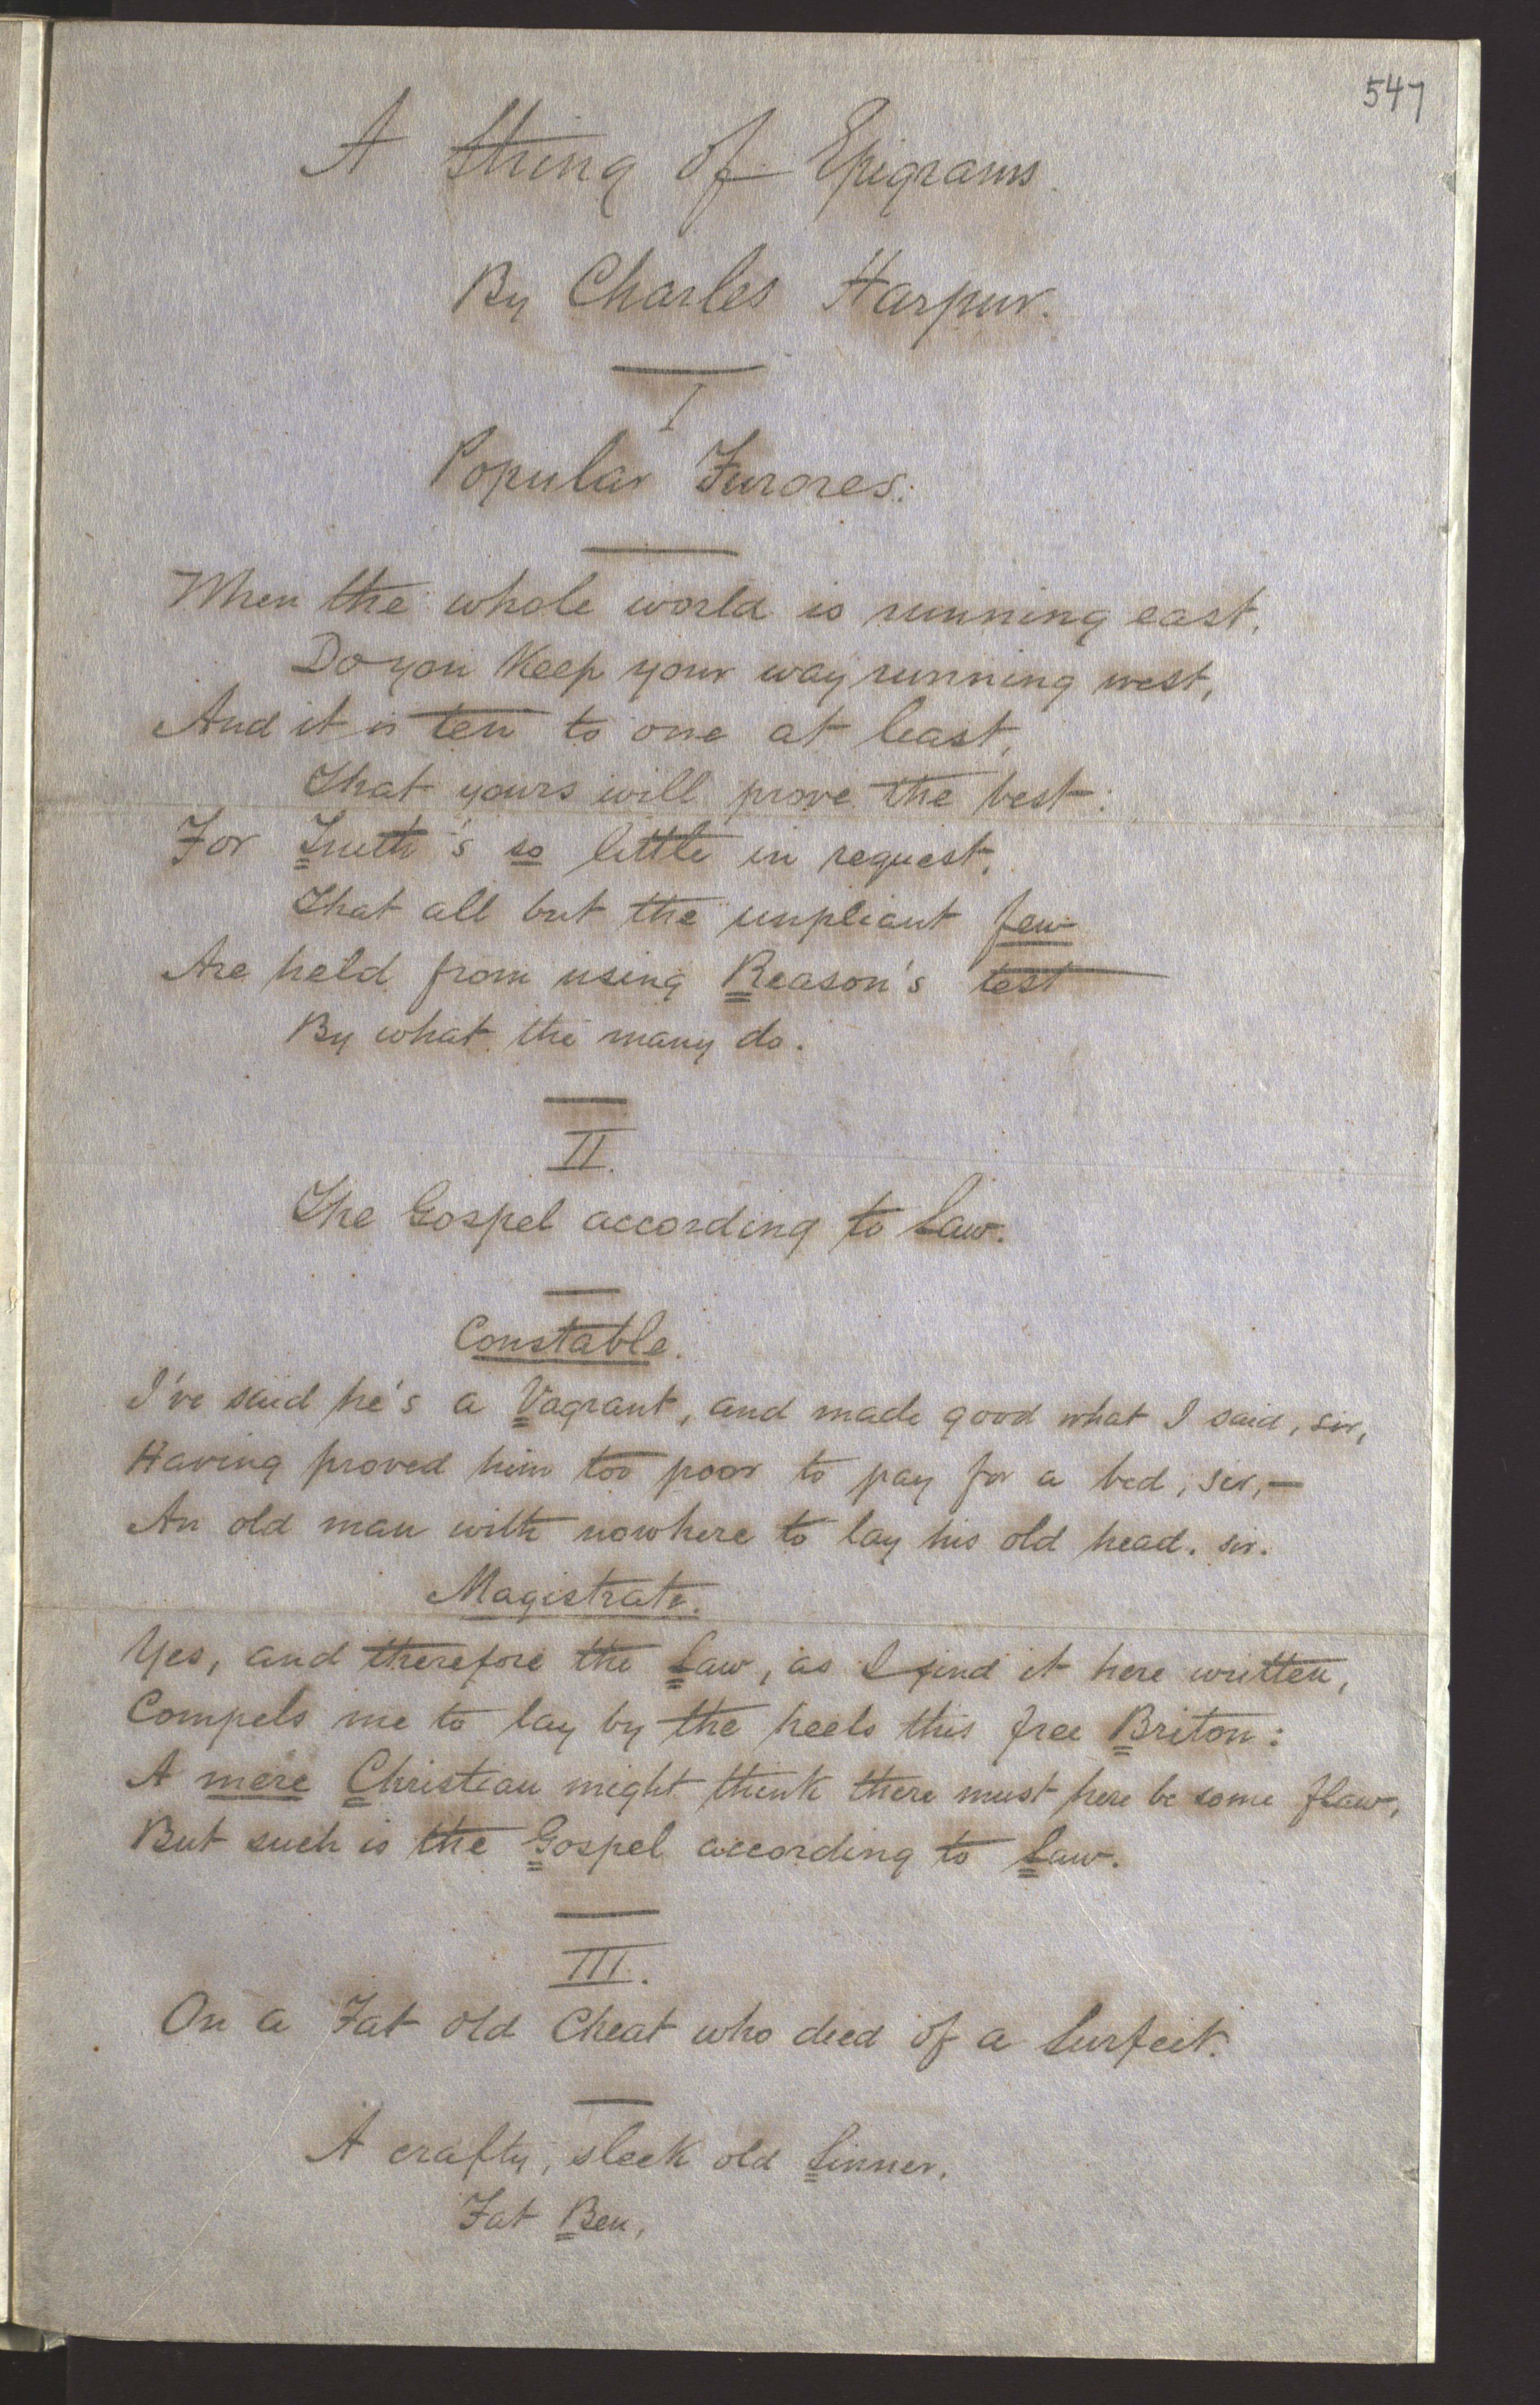 547
A String of Epigrams.
By Charles Harpur.
I
Popular Furores.
When the whole world is running east,
Do you keep your way running west,
And it is ten to one at least,
That yours will prove the best:
For Truth's so little in request,
That all but the unpliant few
Are held from using Reason's test
By what the many do.
II.
The Gospel according to Law.
Constable.
I've said he's a Vagrant, and made good what I said, sir,
Having proved him too poor to pay for a bed, sir,—
An old man with nowhere to lay his old head, sir.
Magistrate.
Yes, and therefore the Law, as I find it here written,
Compels me to lay by the heels this free Briton:
A mere Christian might think there must here be some flaw,
But such is the Gospel according to Law.
III.
On a Fat old Cheat who died of a Surfeit.
A crafty, sleek old Sinner,
Fat Ben,